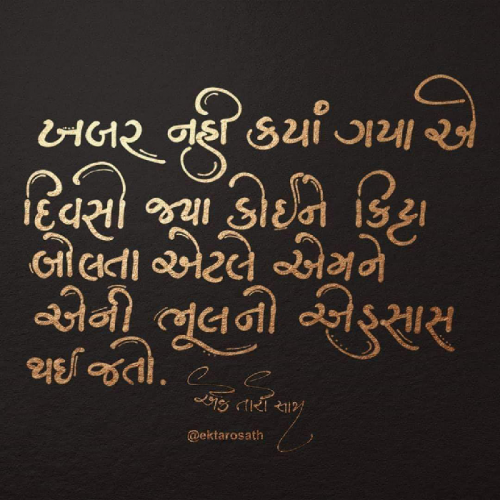 ખબર નહી કયાં ગયા એ
દિવસો જ્યા કોઈને કિટ્ટા
બોલતા એટલે એમને
એની ભૂલનો એહસાસ
થઈ જતો.
એક તારો સાથ
@ektarosath